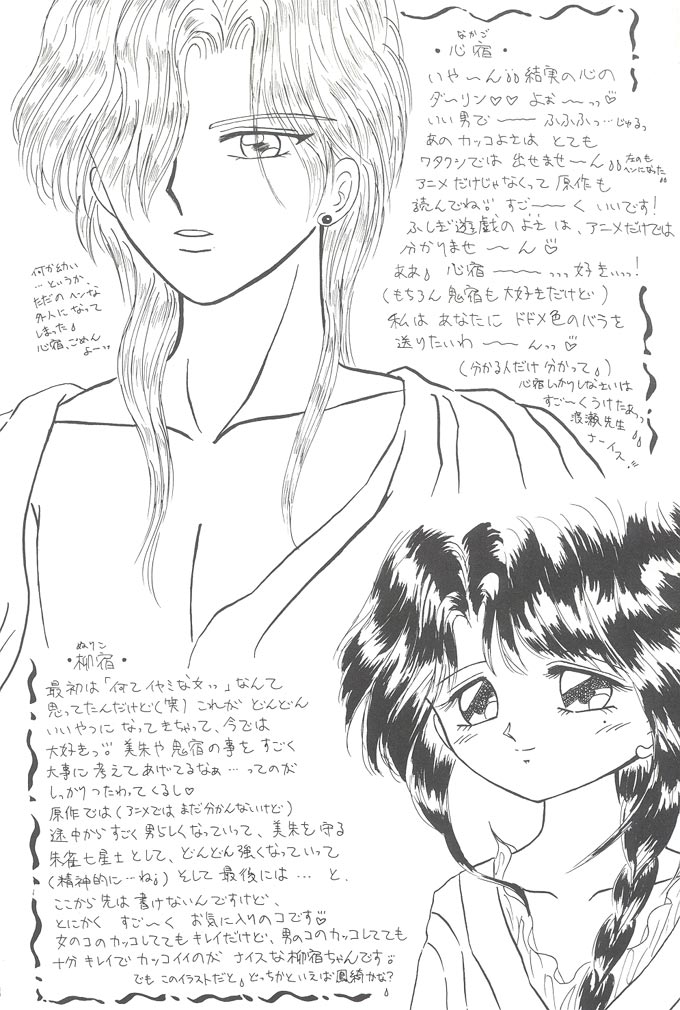 なかご
・心宿・
いや〜ん 結実の心の
ダ〜リン♡♡ よぉ〜〜っっ♡
いい男で〜〜 ふふふっ…じゅるっ
あの カッコよさは とても
ワタクシでは 出せませ〜ん
左のも
ヘンになった
アニメだけじゃなくって 原作も
読んでね すご〜〜く いいです!
ふしぎ遊戯の よさ は、アニメだけでは
分かりませ 〜 ん♡
ああ 心宿 〜〜〜っっっ 好きぃっ!
(もちろん 鬼宿も 大好きだけど)
私は あなたに ドドメ色のバラを
送りたいわ 〜〜んっっ♡
(分かる人だけ 分かって)
心宿しかりしなさいは
すご〜くうけたぁっっ
渡瀬先生
ナーイス!!
何か幼い
…というか、
ただの ヘンな
外人に なって
しまった
心宿、ごめん
よーっっ
ぬりこ
・柳宿・
最初は「何て イヤミな女っっ」なんて
思ってたんだけど(笑) これが どんどん
いいやつに なって きちゃって、今では
大好きっ 美朱や 鬼宿の事を すごく
大事に 考えて あげてるなぁ … ってのが
しっかり つたわって くるし♡
原作では(アニメでは まだ分かんないけど)
途中から すごく 男らしくなっていって、美朱を 守る
朱雀七星士として、どんどん 強くなって いって
(精神的に…ね) そして 最後には … と、
ここから 先は 書けないんですけど、
とにかく すご〜く お気に入りのコです♡
女のコの カッコしてても キレイだけど、男のコのカッコしてても
十分 キレイで カッコイイのが ナイスな 柳宿ちゃんです
でも このイラストだと どっちかといえば 鳳綺かな?